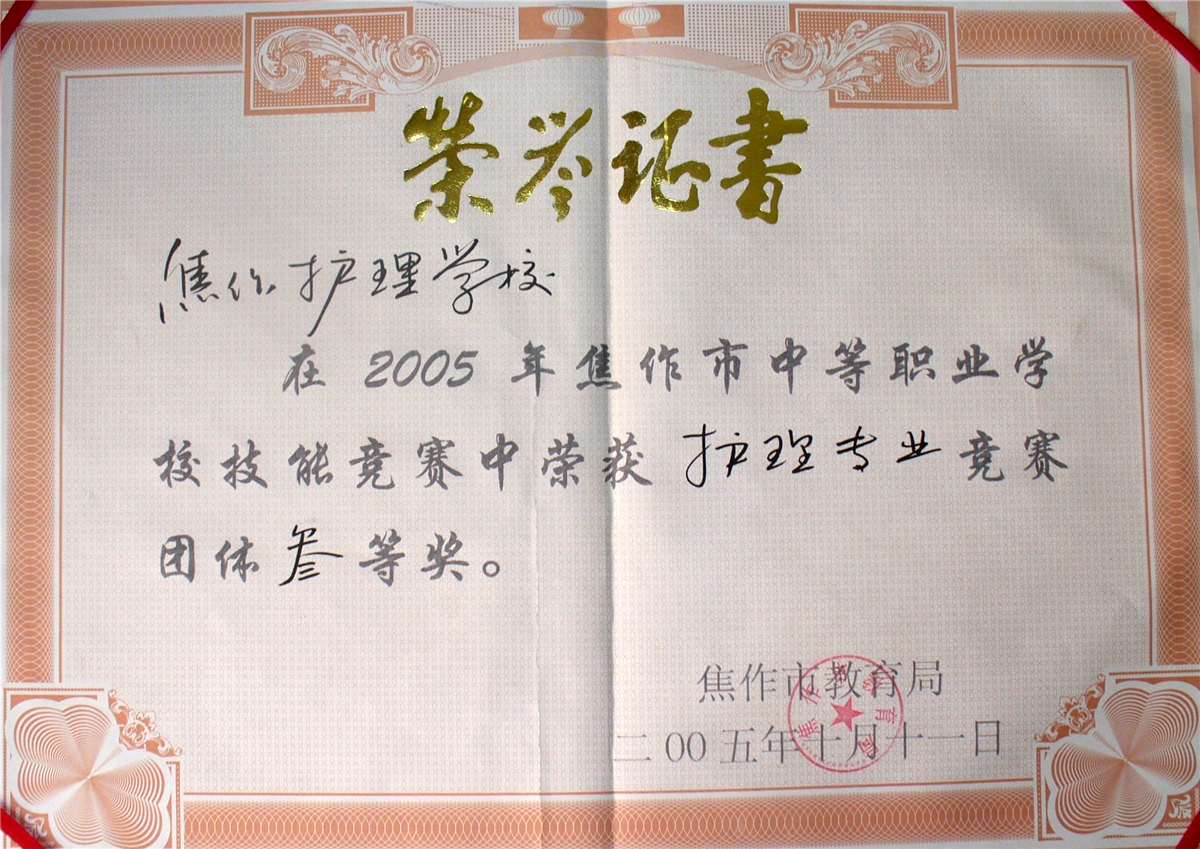 荣誉证书
焦作护理学校
在 2005 年焦作市中等职业学
校技能竞赛中荣获 护理专业 竞赛
团体叁等奖。
焦作市教育局
二00五年十月十一日